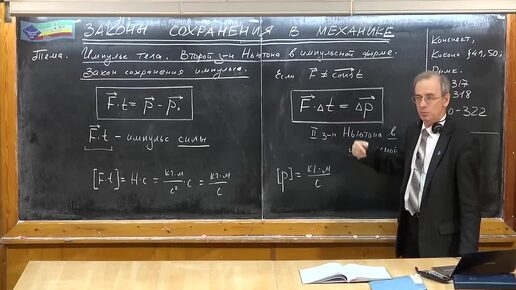 ЗАКОНЫ СОХРАНЕНИЯ В МЕХАНИКЕ
Тема. Импульс тела. Второй з-н Ньютона в импульсной форме.
Закон сохранения импульса.
F⃗·t = p⃗ - p⃗₀
F⃗·t – импульс силы
[F·t] = Н·с = кг·м/с² · с = кг·м/с
Если F⃗ ≠ const
F⃗·Δt = Δp⃗
II з-н Ньютона в
[p] = кг·м/с
Конспект,
Кикоин §49,50;
317
318
-322